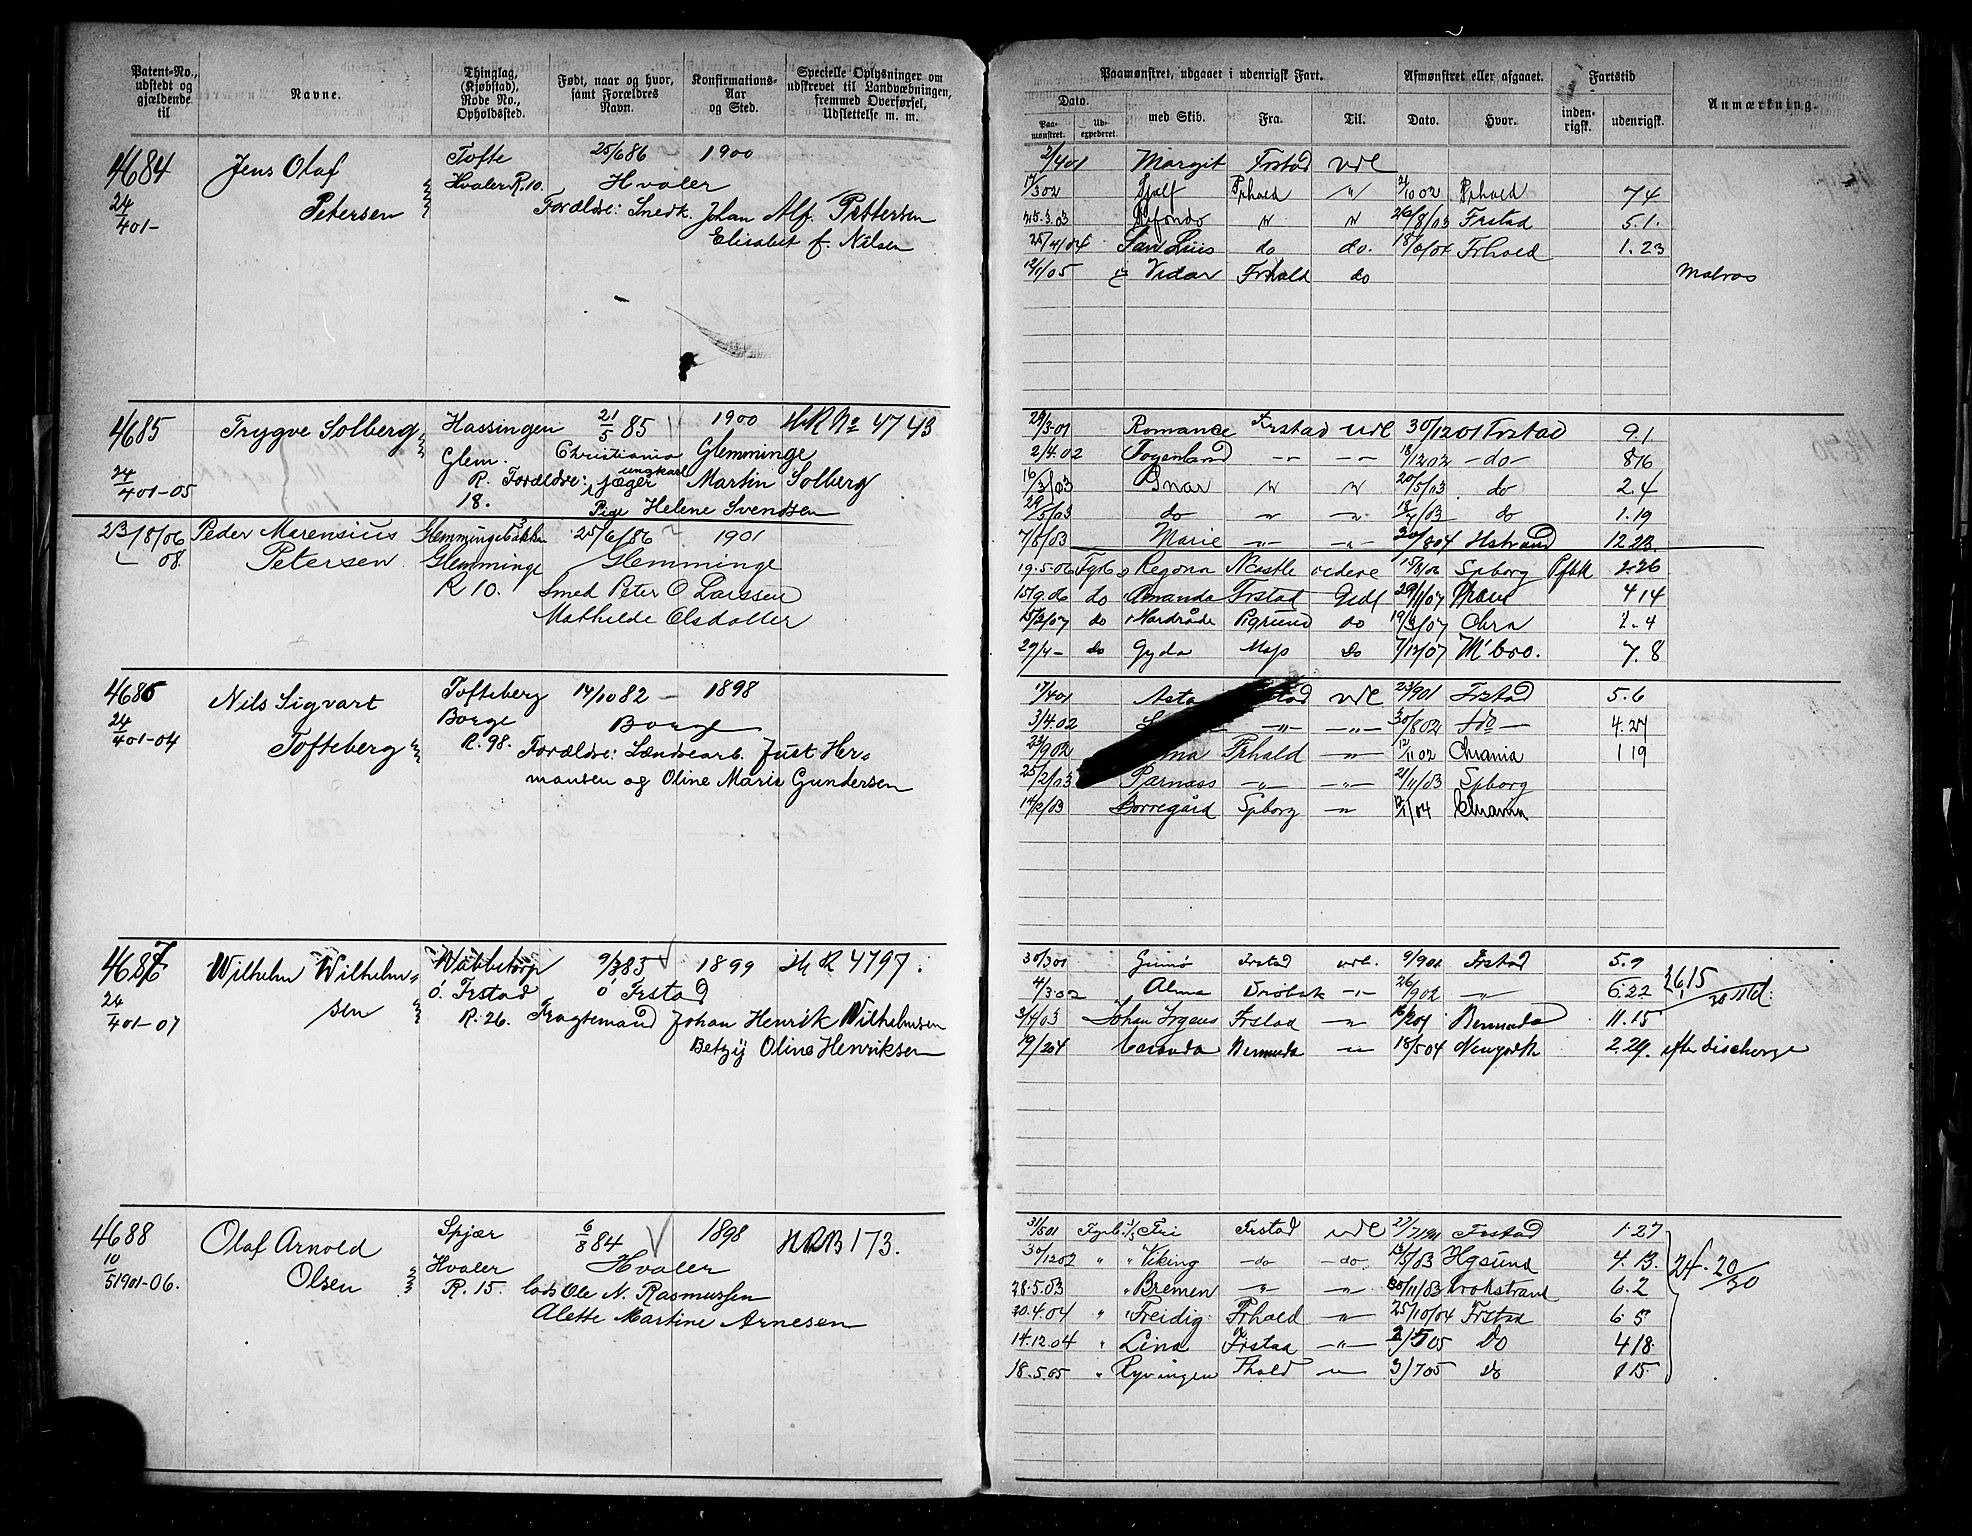 Patent-No., udstedt og gjældende til
Navne.
Thinglag, (Kjøbstad), Rode No., Opholdssted.
Født, naar og hvor, samt Forældres Navn.
Konfirmations-Aar og Sted.
Specielle Oplysninger om udskrevet til Landvæbningen, fremmed Overførsel, Udslettelse m. m.
4684 Jens Olaf Tofte 25/6 86 1900
Hvaler R. 10. Hvaler
24/4 01- Petersen Forældre: Snedk. Johan Alf. Pettersen
Elisabet f. Nilsen
4685 Trygve Solberg Hassingen 21/5 85 1900 HR No 4743
Glem. Christiania Glemminge
ungkarl
24/4 01-05 R. Forældre: jæger Martin Solberg
18. Pige Helene Svendsen
23/8/06 Peder Marensius Glemmingebakken 25/6/86 1901
08. Petersen Glemminge Glemminge
R 10. Smed Peter O Larssen
Mathilde Olsdatter
4686 Nils Sigvart Tofteberg 14/10 82 - 1898
24/4 01-04 Borge Borge
Tofteberg R. 98. Forældre: Landsearb. Just Her-
mansen og Oline Marie Gundersen
4687 Wilhelm Wilhelm- Wabbetorp 9/3 85 1899 H R 4797.
ö. Frstad ö Frstad
24/4 01-07 sen R. 26. Fragtemand Johan Henrik Wilhelmsen
Betzy Oline Henriksen
4688 Olaf Arnold Spjær 6/8 84 1898 HRB 173.
10/5 1901-06. Olsen Hvaler Hvaler
R. 15. Lods Ole N. Rasmussen
Alette Martine Arnesen
Paamønstret, udgaaet i udenrigsk Fart.
Afmønstret eller afgaaet.
Fartstid
Anmærkning.
Dato.
Paamønstret.
Udexpederet.
med Skib.
Fra.
Til.
Dato.
Hvor.
indenrigsk.
udenrigsk.
2/4 01 Margit Frstad Udl
17/3 02 Frhald " 21/10 02 Frhald 7 4
25.3.03 " " 26/8/03 Frstad 5.1.
25/4/04 San Luis do do. 18/6/04 Frhald 1.23
12/1/05 Vidar Frhald do Matros
29/3 01 Romance Frstad Udl 30/12 01 Frstad 9 1
2/4.02 Fogenland -"- -"- 18/12 02 -do- 8 16
16/3/03 Snar " " 20/5/03 do 2.4
29/5/03 do -"- -"- 18/7/03 do 1.19
7/8/03 Marie -"- -"- 20/8 04 Hstrand 12 23
19.5.06 Fyrb Regona 15/8/06 Spborg Pfsk 2.26
15/9.06 do Amanda Frstad Udl 29/1/07 4 14
15/2/07 do Hardråde do 19/3/07 Chra 1.4
29/4- do Gyda Do 7/12/07 M'bro. 7.8
17/4 01 Asta Udl 23/9 01 Frstad 5.6
3/4.02 -"- -"- 30/8 02 -do- 4.27
23/9 02 Frhald -"- 12/11 02 Chrania 1 19
25/2/03 Parnass -"- -"- 21/11/03 Spborg
14/12/03 Borregård Spborg -"- 12/1/04 Chrania
30/3 01 Gumø Frstad udl. 9/9 01 Frstad 5.9
4/3 02 Alma Drøbak -"- 26/9 02 -"- 6.22
3/4/03 Johan Irgens Frstad -"- 16/2 04 Bermuda 11.15
19/2 04 Bermuda -"- 18/5 04 Newyork 2.29. efter discharge
31/5 01 Fyrb. Fri Frstad udl 27/7 1901 Frstad 1.27
30/12 02 " " Viking -do- -do- 13/5/03 Hgsund 4.13.
28.5.03 " Bremen -"- -"- 30/11/03 6.2
20.4.04 " " Freidig Frhald -"- 25/10/04 Frstad 6 5
14.12.04 " Lina Frstad -"- 2/5 05 Do 4 18
18.5.05 " Ryvingen Fhald -"- 3/7 05 Do 1 15
24.20/30